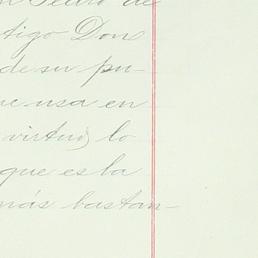 n Pedro de
tigo Don
de su pu-
ue usa en
virtud lo
que es la
más bastan-